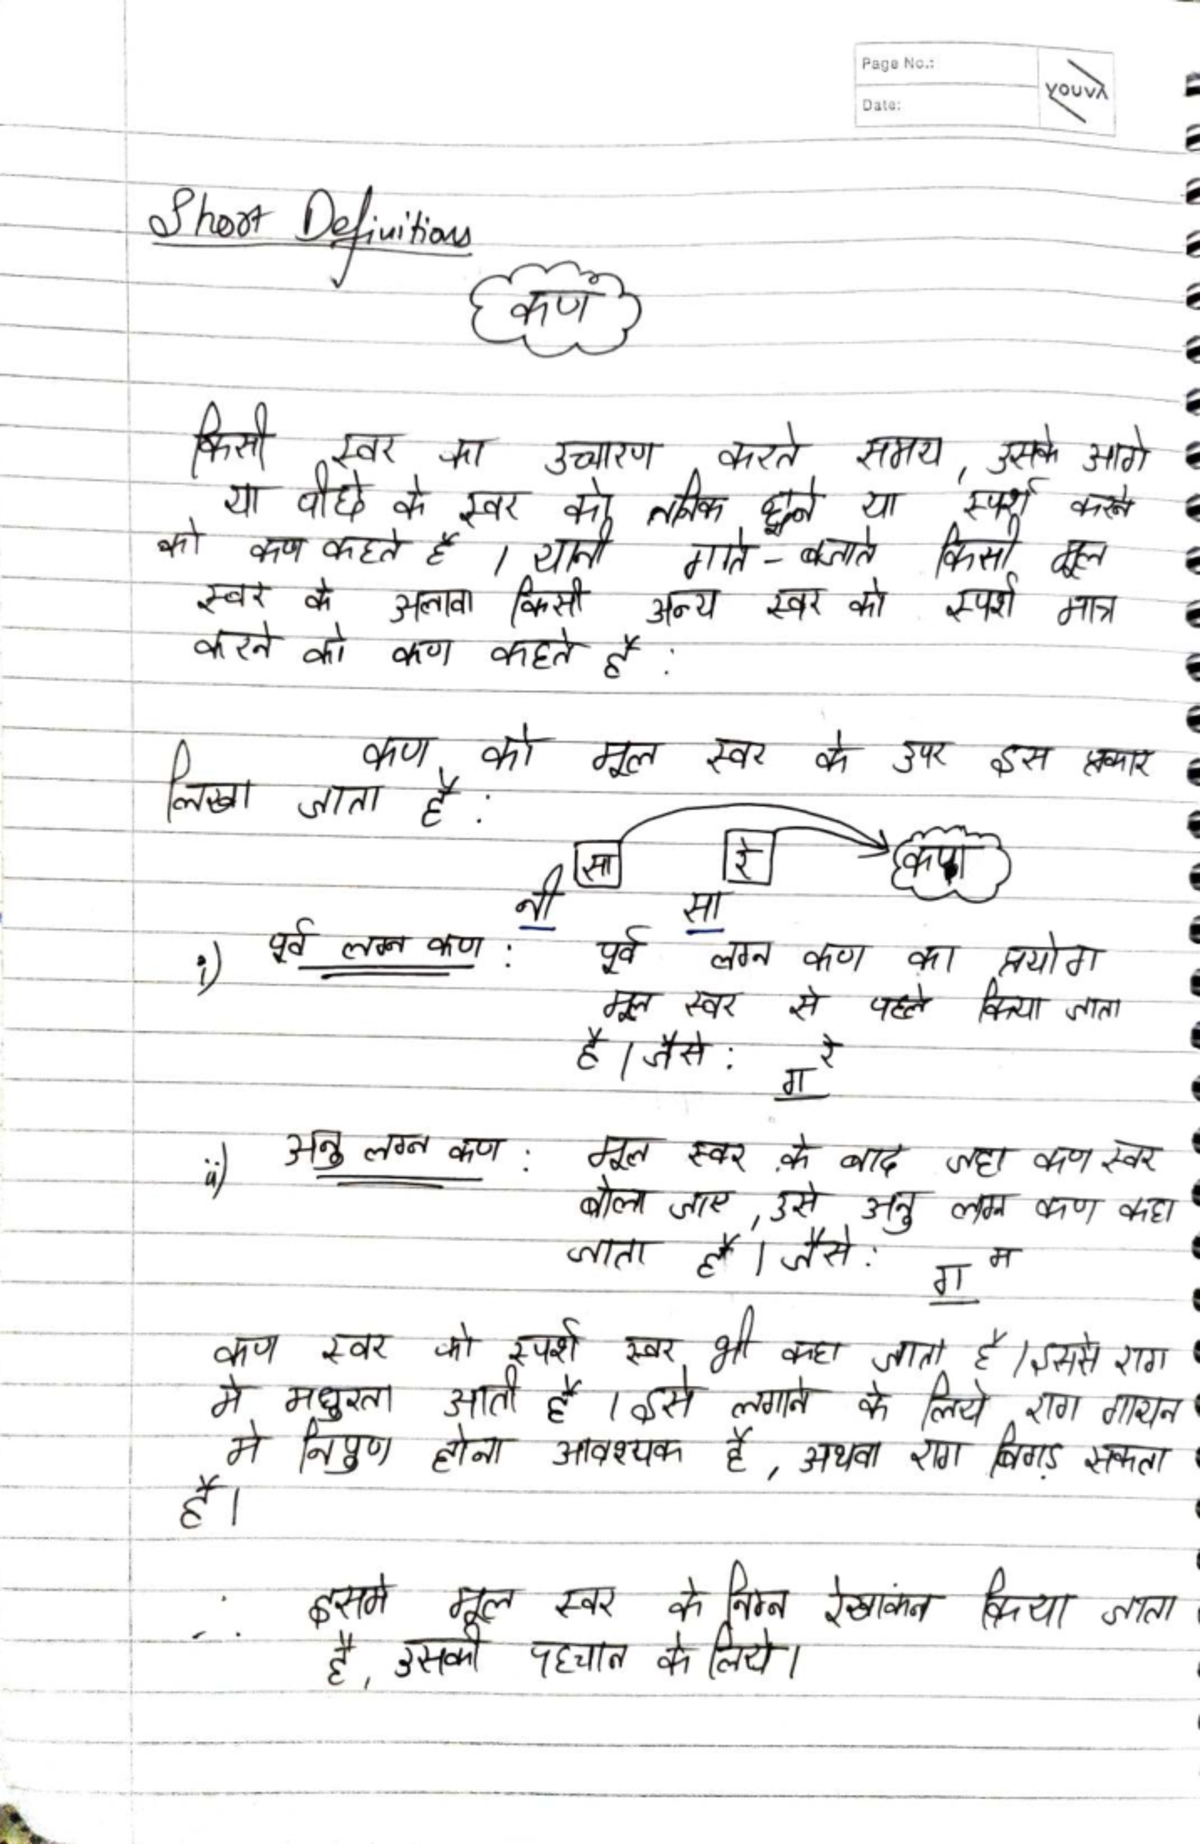 Page No.:
Date:
YOUVA
Short Definitions
कण
किसी स्वर का उच्चारण करते समय, उसके आगे
या पीछे के स्वर को तनिक छूने या स्पर्श करने
को कण कहते है । यानी गाते - बजाते किसी मूल
स्वर के अलावा किसी अन्य स्वर को स्पर्श मात्र
करने को कण कहते है :
कण को मूल स्वर के उपर इस प्रकार
लिखा जाता है :
सा रे कण
नी सा
i) पूर्व लग्न कण : पूर्व लग्न कण का प्रयोग
मूल स्वर से पहले किया जाता
है । जैसे : ग रे
ii) अनु लग्न कण : मूल स्वर के बाद जहा कण स्वर
बोला जाए , उसे अनु लग्न कण कहा
जाता है । जैसे : ग म
कण स्वर को स्पर्श स्वर भी कहा जाता है । इससे राग
मे मधुरता आती है । इसे लगाने के लिये राग गायन
मे निपुण होना आवश्यक है , अथवा राग बिगड़ सकता
है ।
∴ इसमे मूल स्वर के निम्न रेखाकंन किया जाता
है , उसकी पहचान के लिये ।